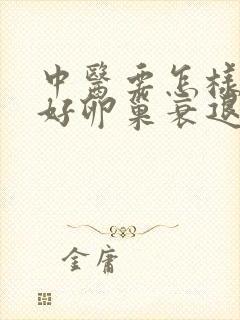 中醫需怎樣
好卵巢衰退
金庸